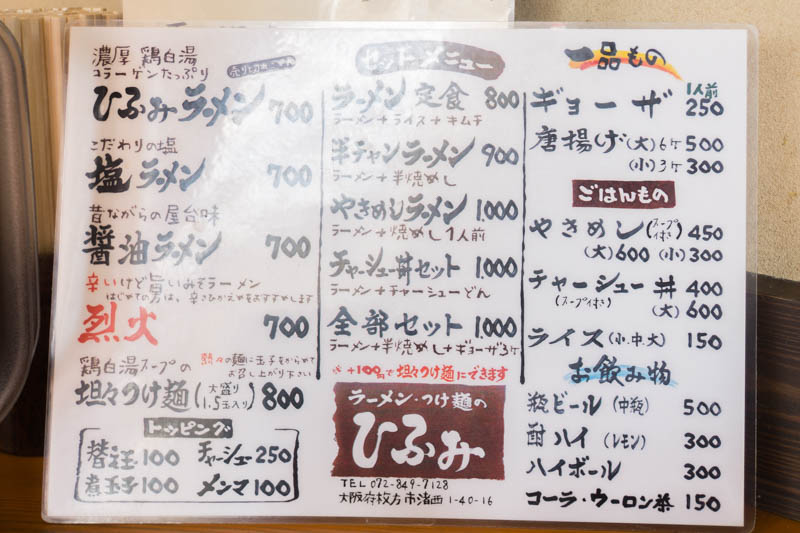 濃厚 鶏白湯
コラーゲンたっぷり
ひふみラーメン 700
こだわりの塩
塩ラーメン 700
昔ながらの屋台味
醤油ラーメン 700
辛いけど旨いみそラーメン
はじめての方は、辛さひかえめをおすすめします
烈火 700
鶏白湯スープの
麺に玉子をからめて
お召し上がり下さい
坦々つけ麺(大盛り 1.5玉入り) 800
トッピング
替え玉100 チャーシュー250
煮玉子100 メンマ100
セットメニュー
ラーメン定食 800
ラーメン+ライス+キムチ
半チャンラーメン 900
ラーメン+半焼めし
やきめしラーメン 1,000
ラーメン+焼めし1人前
チャーシュー丼セット 1,000
ラーメン+チャーシューどん
全部セット 1,000
ラーメン+半焼めし+ギョーザ3ケ
※+100円で坦々つけ麺にできます
ラーメン・つけ麺の
ひふみ
TEL 072-849-7128
大阪府枚方市渚西1-40-16
一品もの
1人前
ギョーザ 250
唐揚げ(大)6ケ 500
(小)3ケ 300
ごはんもの
やきめし(スープ付き) 450
(大)600 (小)300
チャーシュー丼 400
(スープ付き) (大)600
ライス(小.中.大) 150
お飲み物
瓶ビール(中瓶) 500
酎ハイ(レモン) 300
ハイボール 300
コーラ・ウーロン茶 150